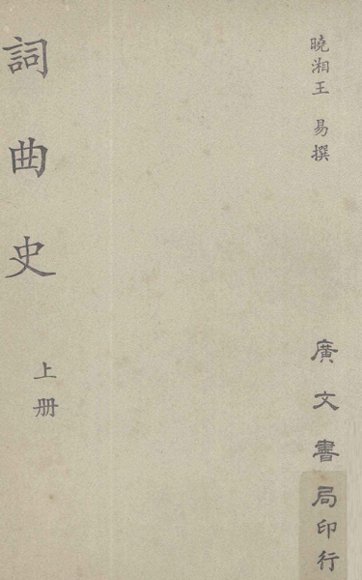 曉湘王 易撰
廣文書局印行
詞曲史
上册